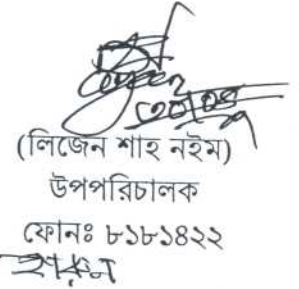 (লিজেন শাহ নইম)
উপপরিচালক
ফোনঃ ৮১৮১৪২২